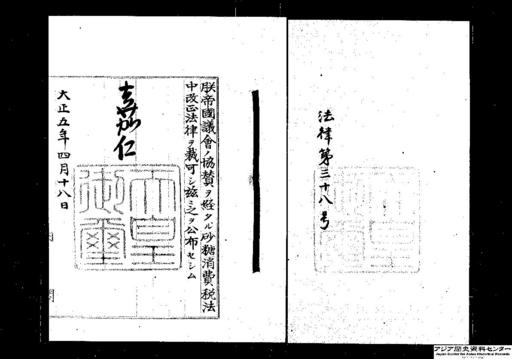 法律第三十八号
朕帝國議會ノ協賛ヲ經タル砂糖消費税法
中改正法律ヲ裁可シ茲ニ之ヲ公布セシム
嘉仁
天皇
御璽
大正五年四月十八日
アジア歴史資料センター
Japan Center for Asian Historical Records